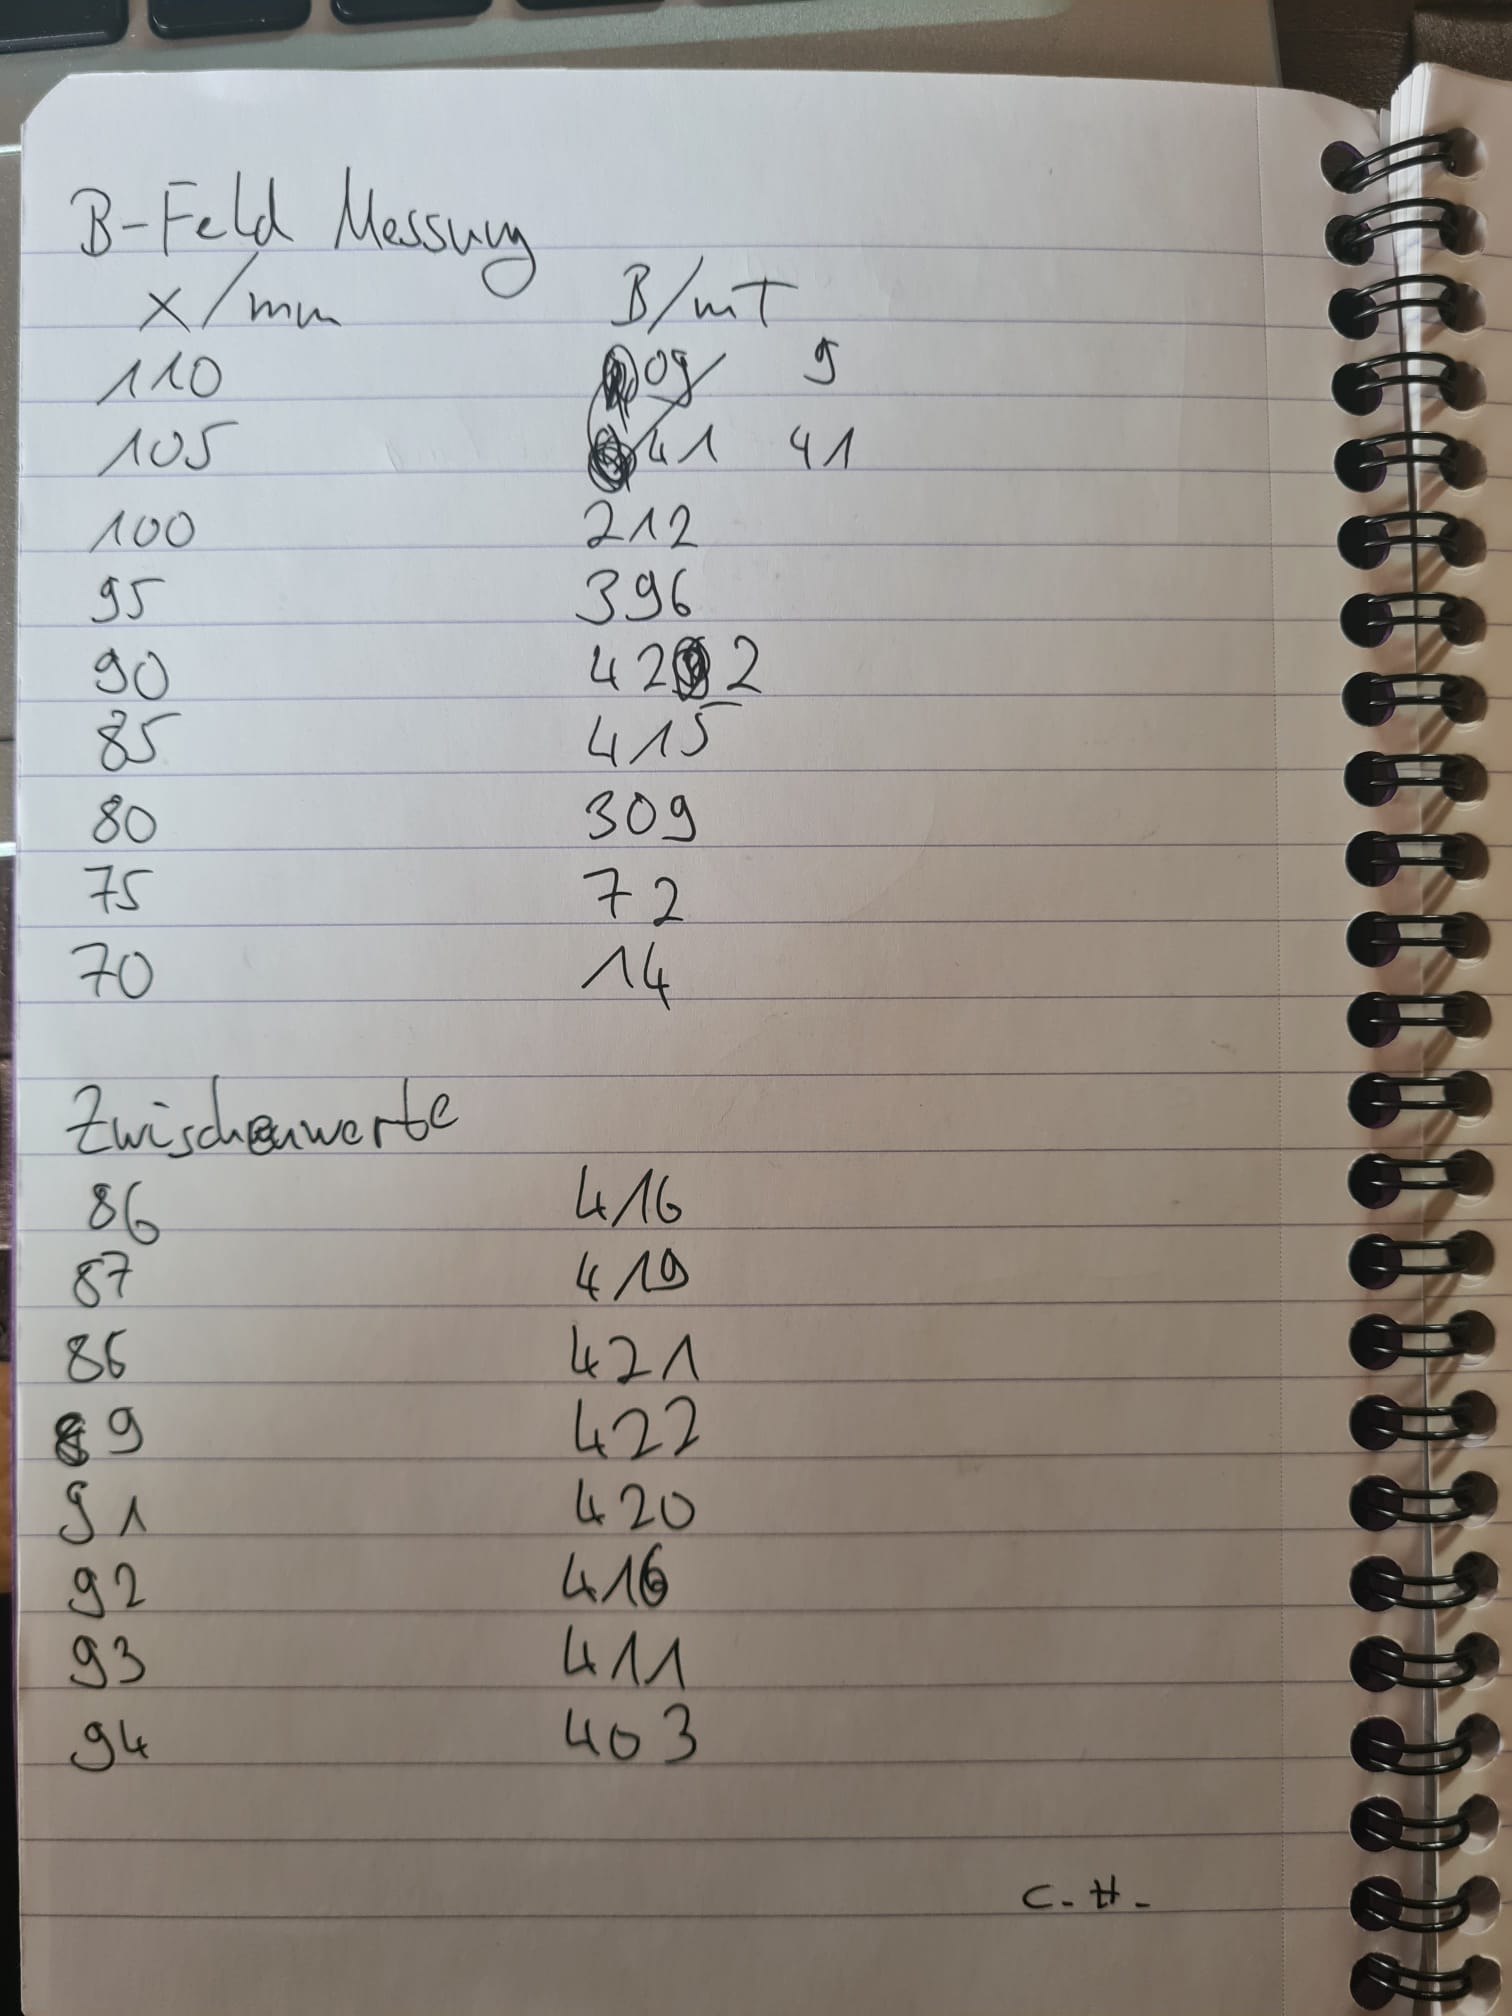 B-Feld Messung
x/mm B/mT
110 09 9
105 41 41
100 212
95 396
90 422
85 415
80 309
75 72
70 14
Zwischenwerte
86 416
87 419
86 421
89 422
91 420
92 416
93 411
94 403
C.H.